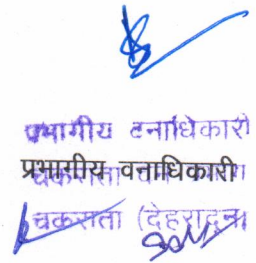 प्रभागीय वनाधिकारी
प्रभागीय वनाधिकारी
चकराता
चकराता (देहरादून)